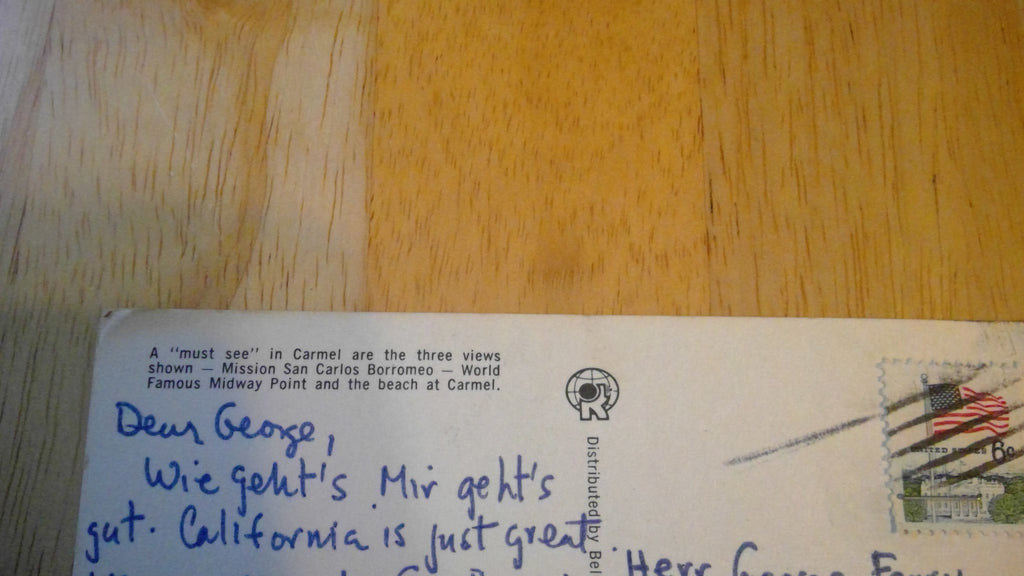 A "must see" in Carmel are the three views
shown — Mission San Carlos Borromeo — World
Famous Midway Point and the beach at Carmel.
Dear George,
Wie geht's Mir geht's
gut. California is just great.
Distributed by Bel
UNITED STATES 6c
Herr George